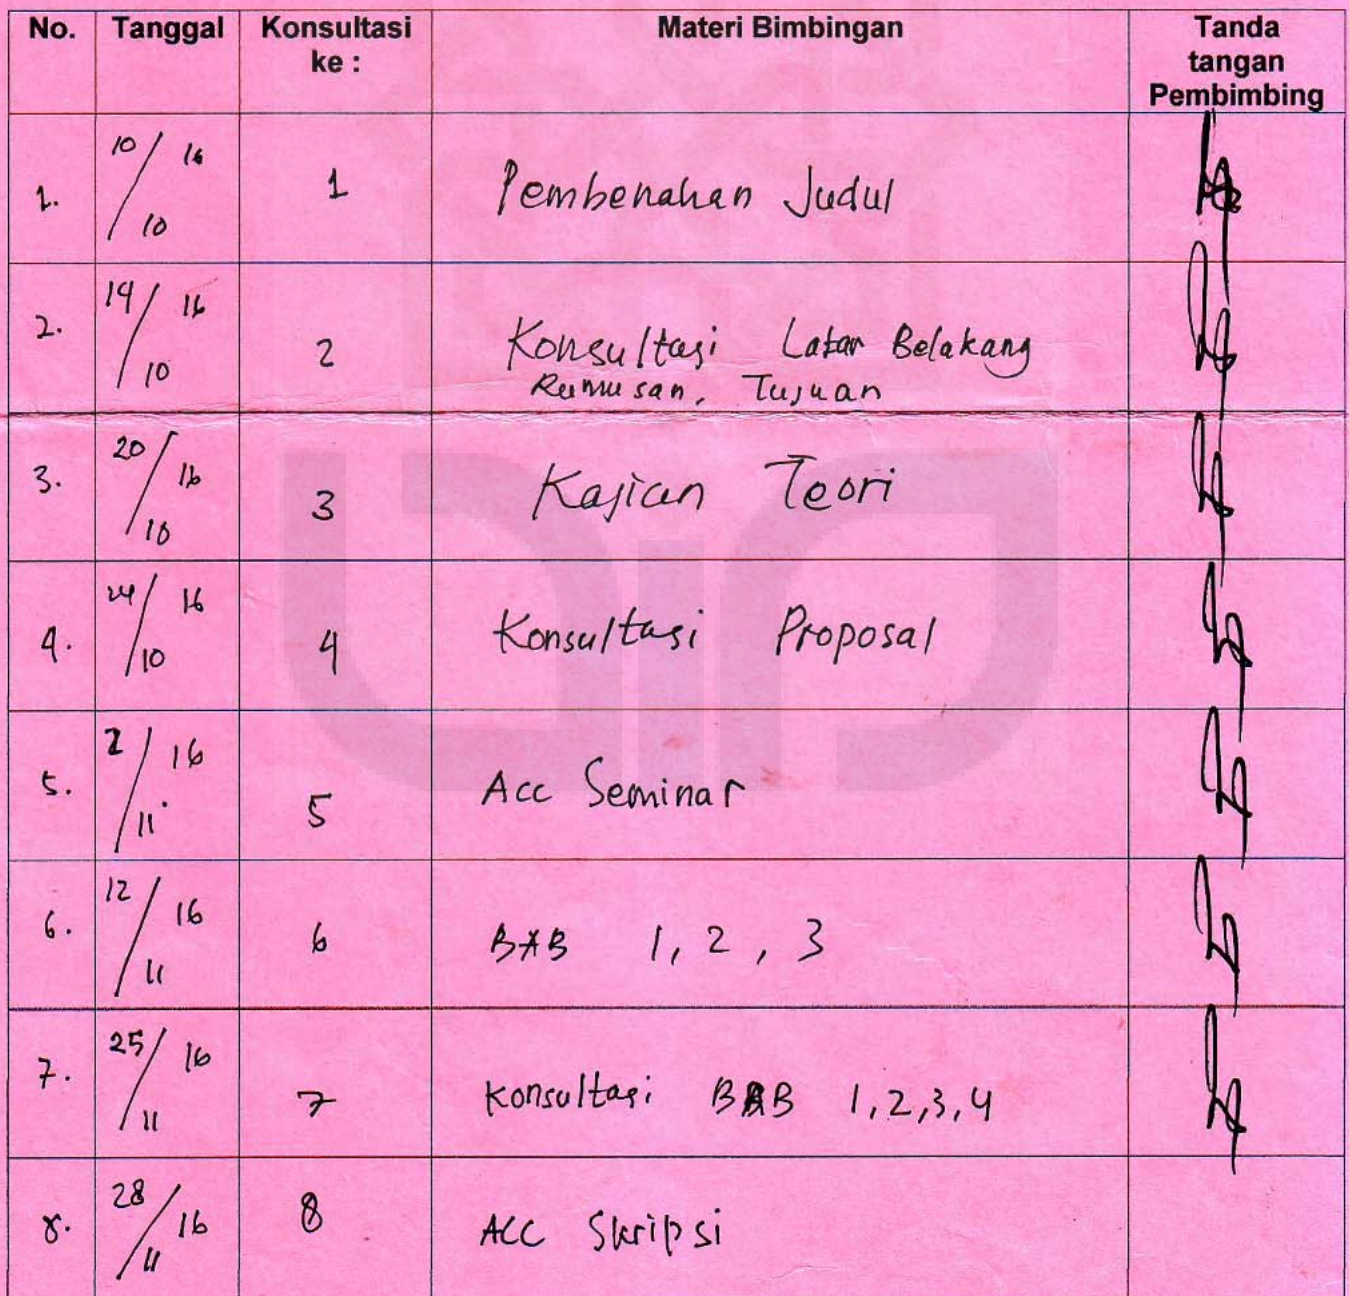 No. Tanggal Konsultasi ke : Materi Bimbingan Tanda tangan Pembimbing
1. 10/10 16 1 Pembenahan Judul
2. 14/10 16 2 Konsultasi Latar Belakang
Rumusan, Tujuan
3. 20/10 16 3 Kajian Teori
4. 24/10 16 4 Konsultasi Proposal
5. 2/11 16 5 Acc Seminar
6. 12/11 16 6 BAB 1, 2, 3
7. 25/11 16 7 Konsultasi BAB 1,2,3,4
8. 28/11 16 8 ACC Skripsi